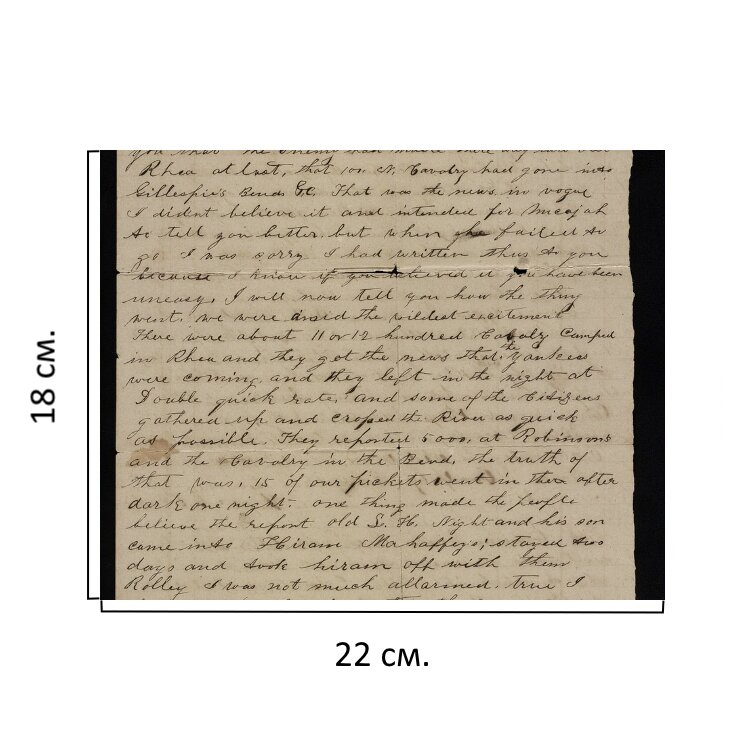 you that the enemy had
Rhea at last, that 100 N. Cavalry had gone into
Gillespie's Bends &C. That was the news in vogue
I didnt believe it and intended for Micajah
to tell you better, but when he failed to
go I was sorry I had written thus to you
because I know if you believed it you have been
uneasy. I will now tell you how the thing
went. we were amid the wildest excitement
There were about 11 or 12 hundred Cavalry Camped
in Rhea and they got the news that the Yankees
were coming, and they left in the night at
Double quick rate, and some of the Citizens
gathered up and crossed the River as quick
as possible. They reported 5000, at Robinsons
and the Cavalry in the Bend, the truth of
that was, 15 of our pickets went in there after
dark one night. one thing made the people
believe the report old S. H. Night and his son
came into Hiram Mahaffeys; stayed two
days and took hiram off with them
Rolley I was not much allarmed, true I
18 см.
22 см.